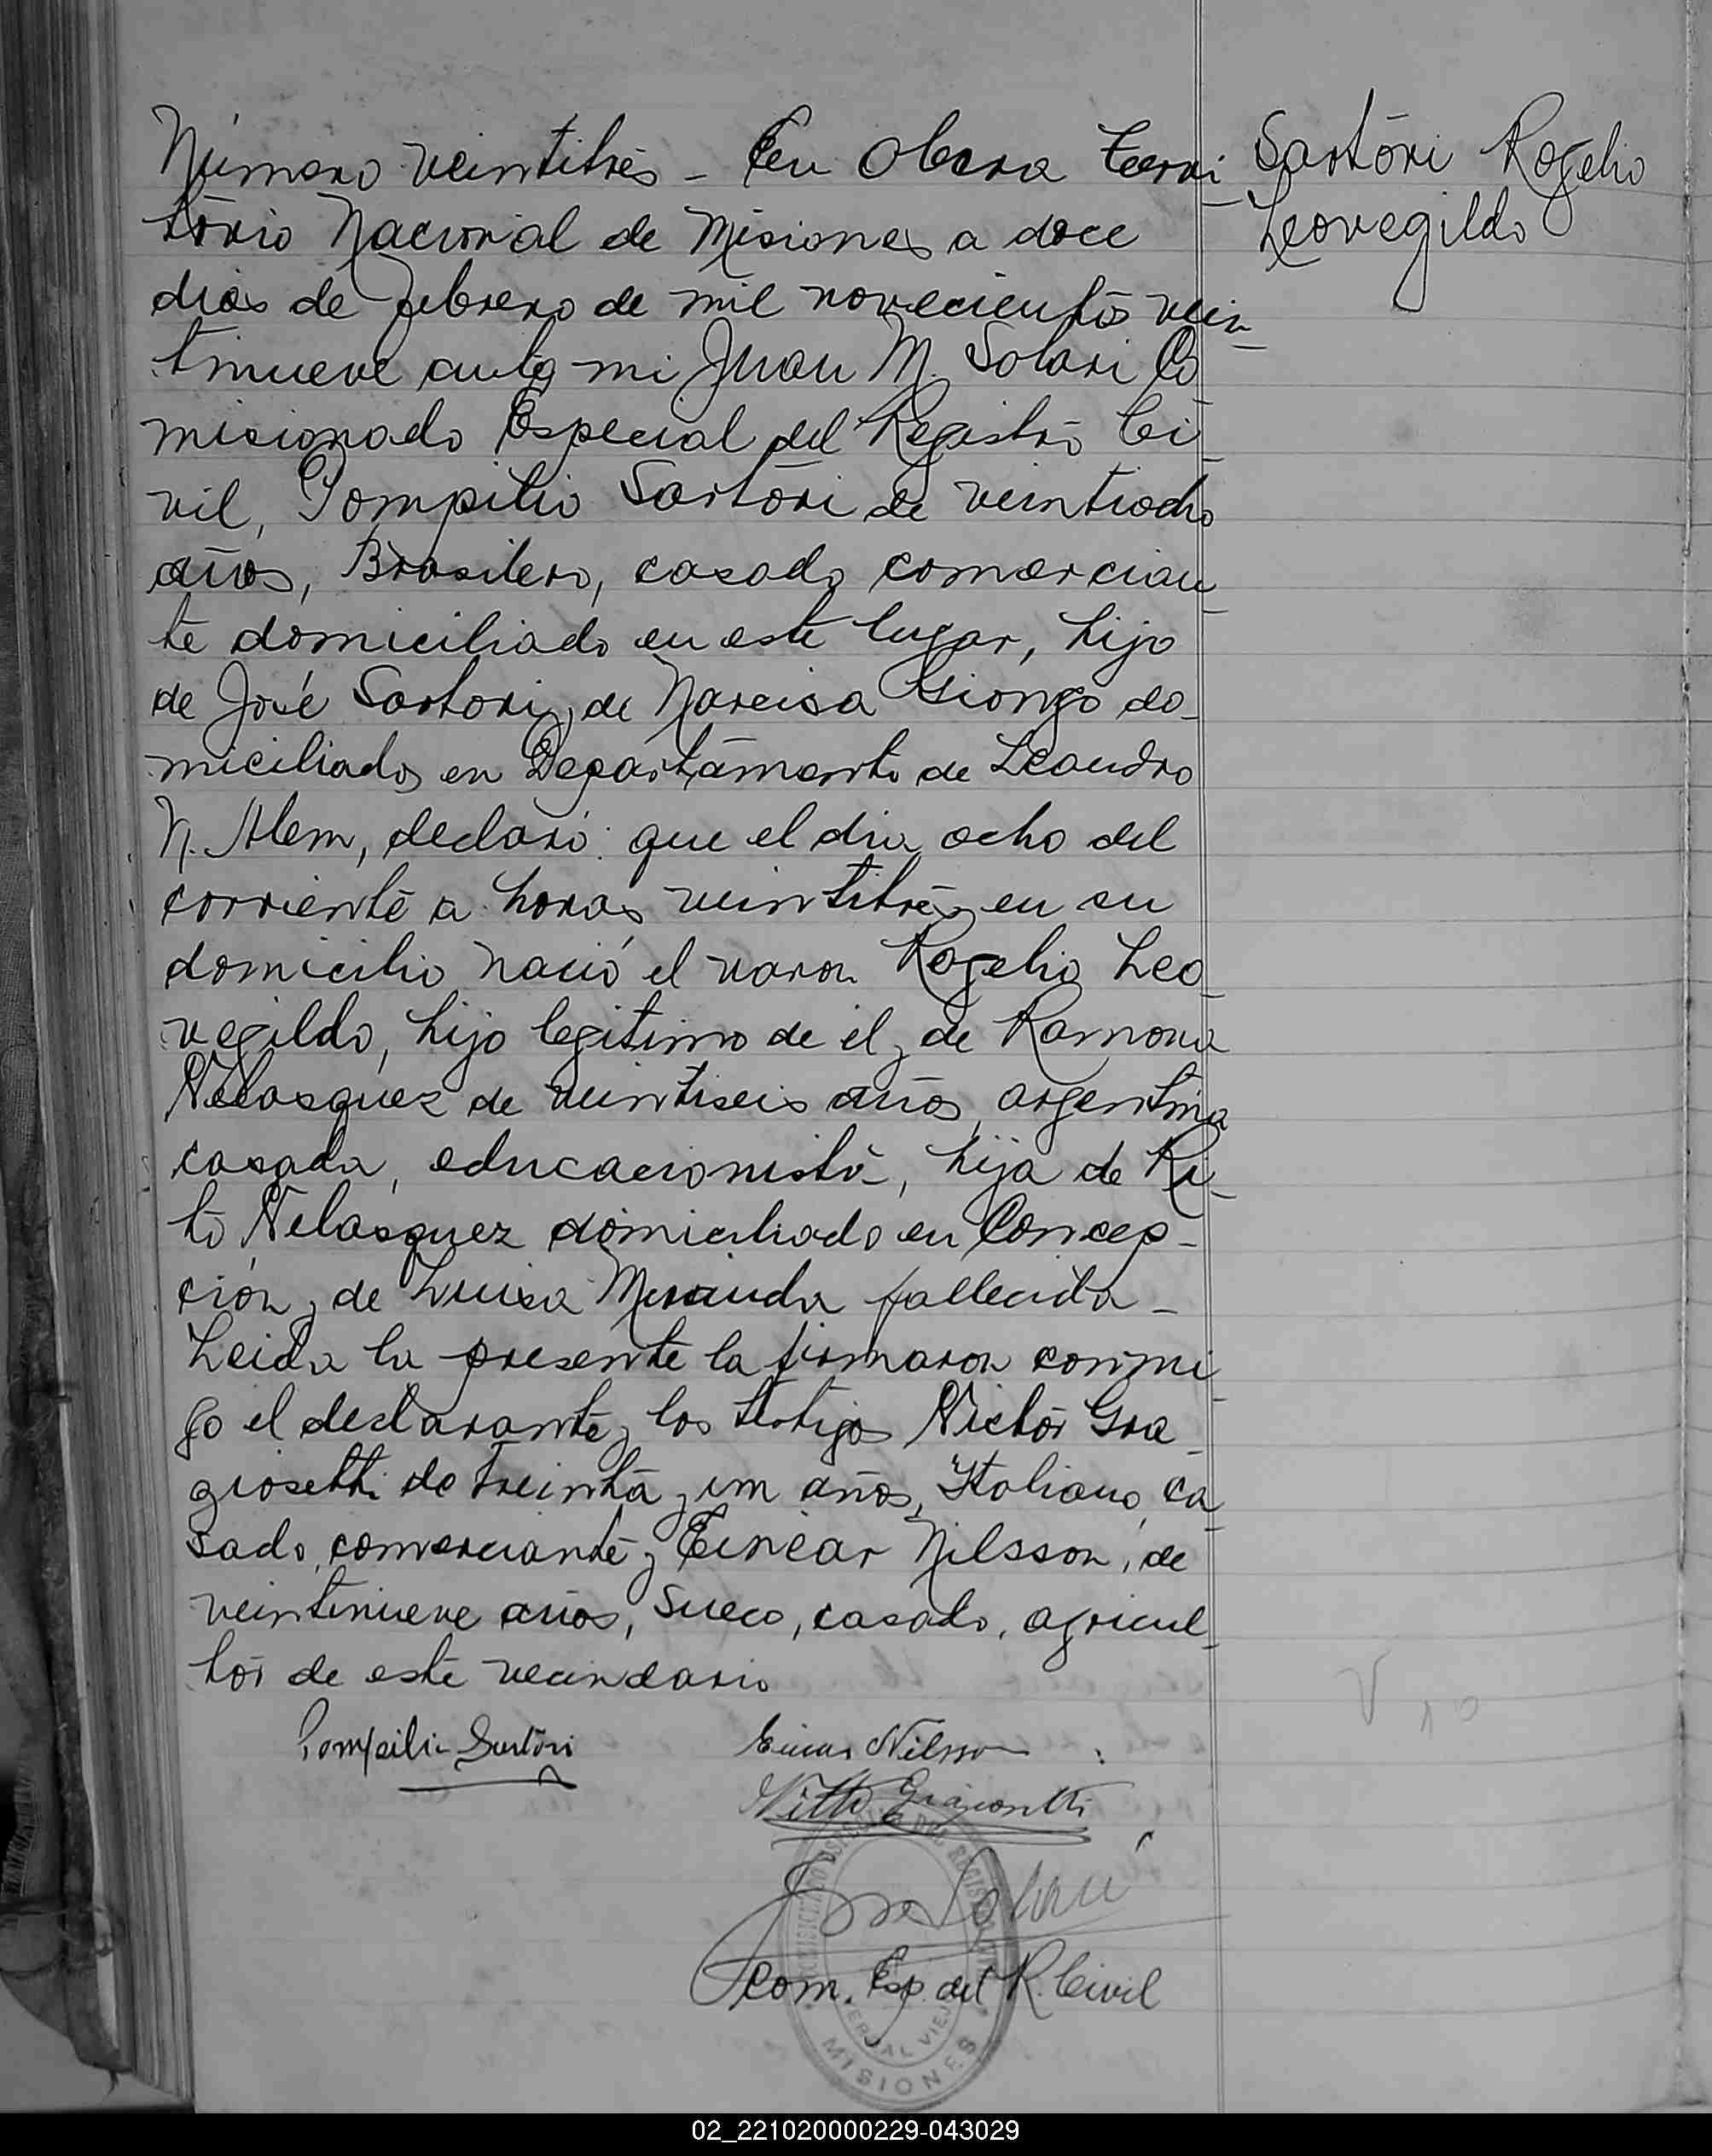 Número veintitrés - En Obera Terri
Sartori Rogelio
Leovegildo
torio Nacional de Misiones a doce
dias de febrero de mil novecientos vein-
tinueve ante mi Juan M. Solari Co
misionado Especial del Registro Ci-
vil, Pompilio Sartori de veintiocho
años, Brasilero, casado comercian-
te domiciliado en este lugar, hijo
de José Sartori y de Narcisa Giongo do-
miciliados en Departamento de Leandro
N. Alem, declaró: que el dia ocho del
corriente a horas veintitrés en su
domicilio nació el varon Rogelio Leo-
vegildo, hijo legitimo de él y de Ramona
Velasquez de veintiseis años, argentina
casada, educacionista, hija de Ri-
to Velasquez domiciliado en Concep-
ción y de Luisa Miranda fallecida -
Leida la presente la firmaron conmi-
go el declarante y los testigos Victor Gra-
giosetti de treinta y un años, Italiano, ca-
sado, comerciante y Eincar Nilsson, de
veintinueve años, Sueco, casado, agricul-
tor de este vecindario
Pompilio Sartori
Einar Nilsson
Solari
Com. Esp. del R. Civil
MISIONES
02_221020000229-043029